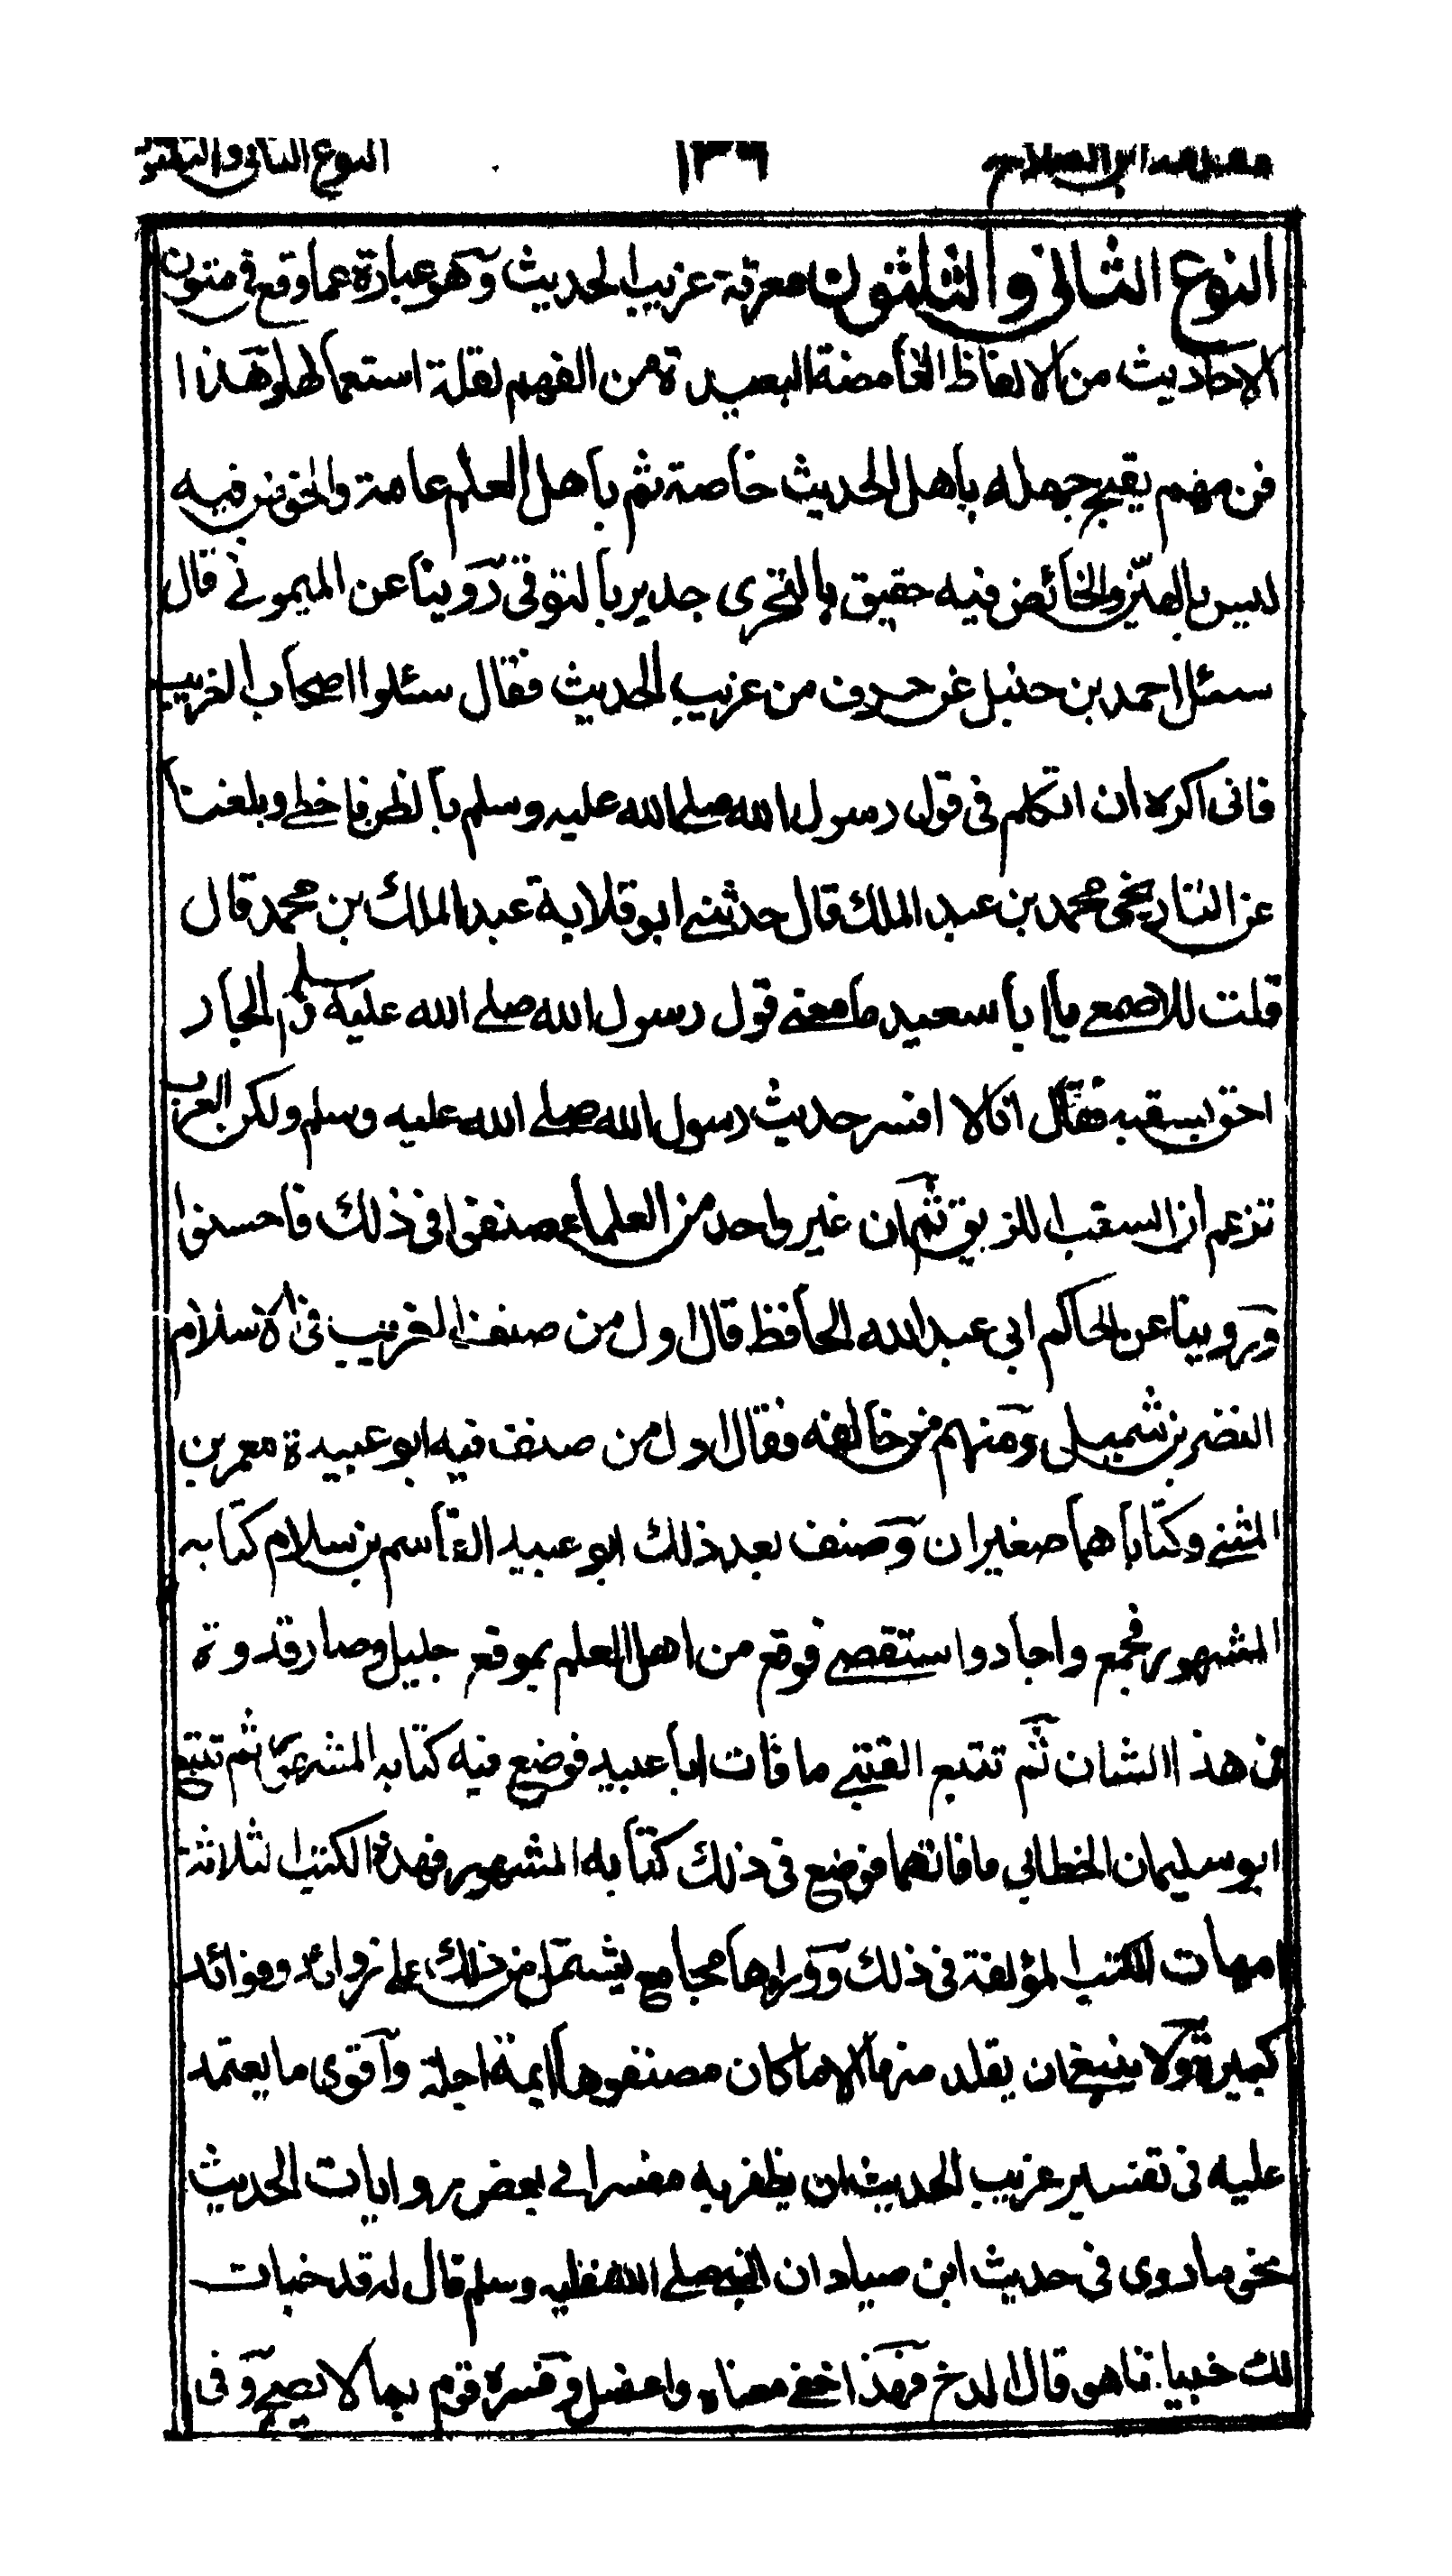 مقدمه ابن الصلاح ١٣٦ النوع الثاني والثلثون
النوع الثاني والثلثون معرفة غريب الحديث وهو عبارة عما وقع في متون
الاحاديث من الالفاظ الغامضة البعيدة من الفهم لقلة استعمالها وهذا
فن مهم يقبح جهله باهل الحديث خاصة ثم باهل العلم عامة والخوض فيه
ليس بالهين والخائض فيه حقيق بالتحري جدير بالتوقي روينا عن الميموني قال
سئل احمد بن حنبل عن حرف من غريب الحديث فقال سئلوا اصحاب الغريب
فاني اكره ان اتكلم في قول رسول الله صلى الله عليه وسلم بالظن فاخطي وبلغنا
عن التاريخي محمد بن عبد الملك قال حدثني ابو قلابة عبد الملك بن محمد قال
قلت للاصمعي يا ابا سعيد ما معنى قول رسول الله صلى الله عليه وسلم الجار
احق بسقبه فقال انا لا افسر حديث رسول الله صلى الله عليه وسلم ولكن العرب
تزعم ان السقب اللزيق ثم ان غير واحد من العلماء صنفوا في ذلك فاحسنوا
وروينا عن الحاكم ابي عبد الله الحافظ قال اول من صنف الغريب في الاسلام
النضر بن شميل ومنهم من خالفه فقال اول من صنف فيه ابو عبيدة معمر بن
المثنى وكتاباهما صغيران وصنف بعد ذلك ابو عبيد القاسم بن سلام كتابه
المشهور فجمع واجاد واستقصى فوقع من اهل العلم بموقع جليل وصار قدوة
في هذا الشان ثم تتبع القتبي ما فات ابا عبيد فوضع فيه كتابه المشهور ثم تتبع
ابو سليمان الخطابي ما فاتهما فوضع في ذلك كتابه المشهور فهذه الكتب الثلاثة
امهات الكتب المؤلفة في ذلك ووراءها مجامع يشتمل من ذلك على زوائد وفوائد
كثيرة ولا ينبغي ان يقلد منها الا ما كان مصنفوها ايمة اجلة واقوى ما يعتمد
عليه في تفسير غريب الحديث ان يظفر به مفسرا في بعض روايات الحديث
نحو ما روي في حديث ابن صياد ان النبي صلى الله عليه وسلم قال له قد خبات
لك خبيا فما هو قال الدخ فهذا خفي معناه واعضل وفسره قوم بما لا يصح وفي